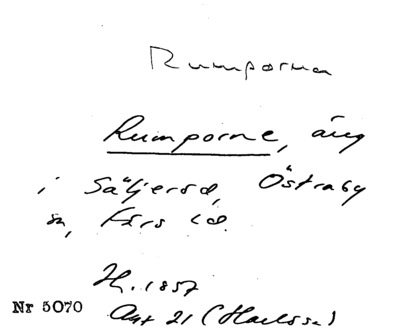 Rumporna
Rumporne, äng
i Säljeröd, Östraby
sn, Färs hd.
H. 1857
Nr 5070
Akt 21 (